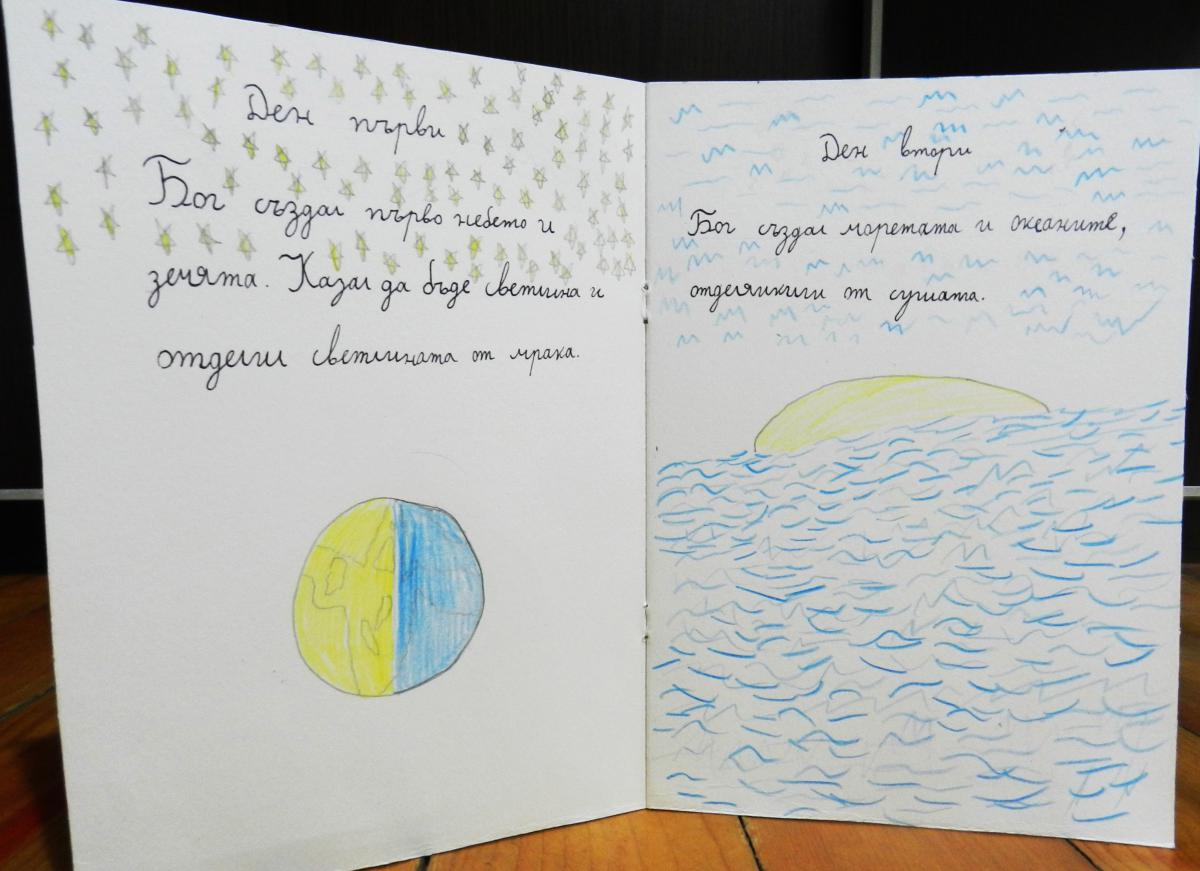 Ден първи
Бог създал първо небето и
земята. Казал да бъде светлина и
отделил светлината от мрака.
Ден втори
Бог създал моретата и океаните,
от сушата.